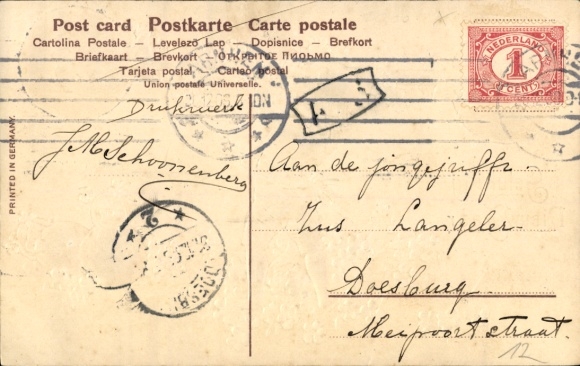 Post card Postkarte Carte postale
Cartolina Postale – Levelező Lap – Dopisnice – Brefkort
Briefkaart – Brevkort – ОТКРЫТОЕ ПИСЬМО
Tarjeta postal – Cartão postal
Union postale Universelle.
NEDERLAND
1
CENT
Drukwerk
J M Schoonenberg
PRINTED IN GERMANY.
Aan de
Zus Langeler
Doesburg
Meipoortstraat.
12
2